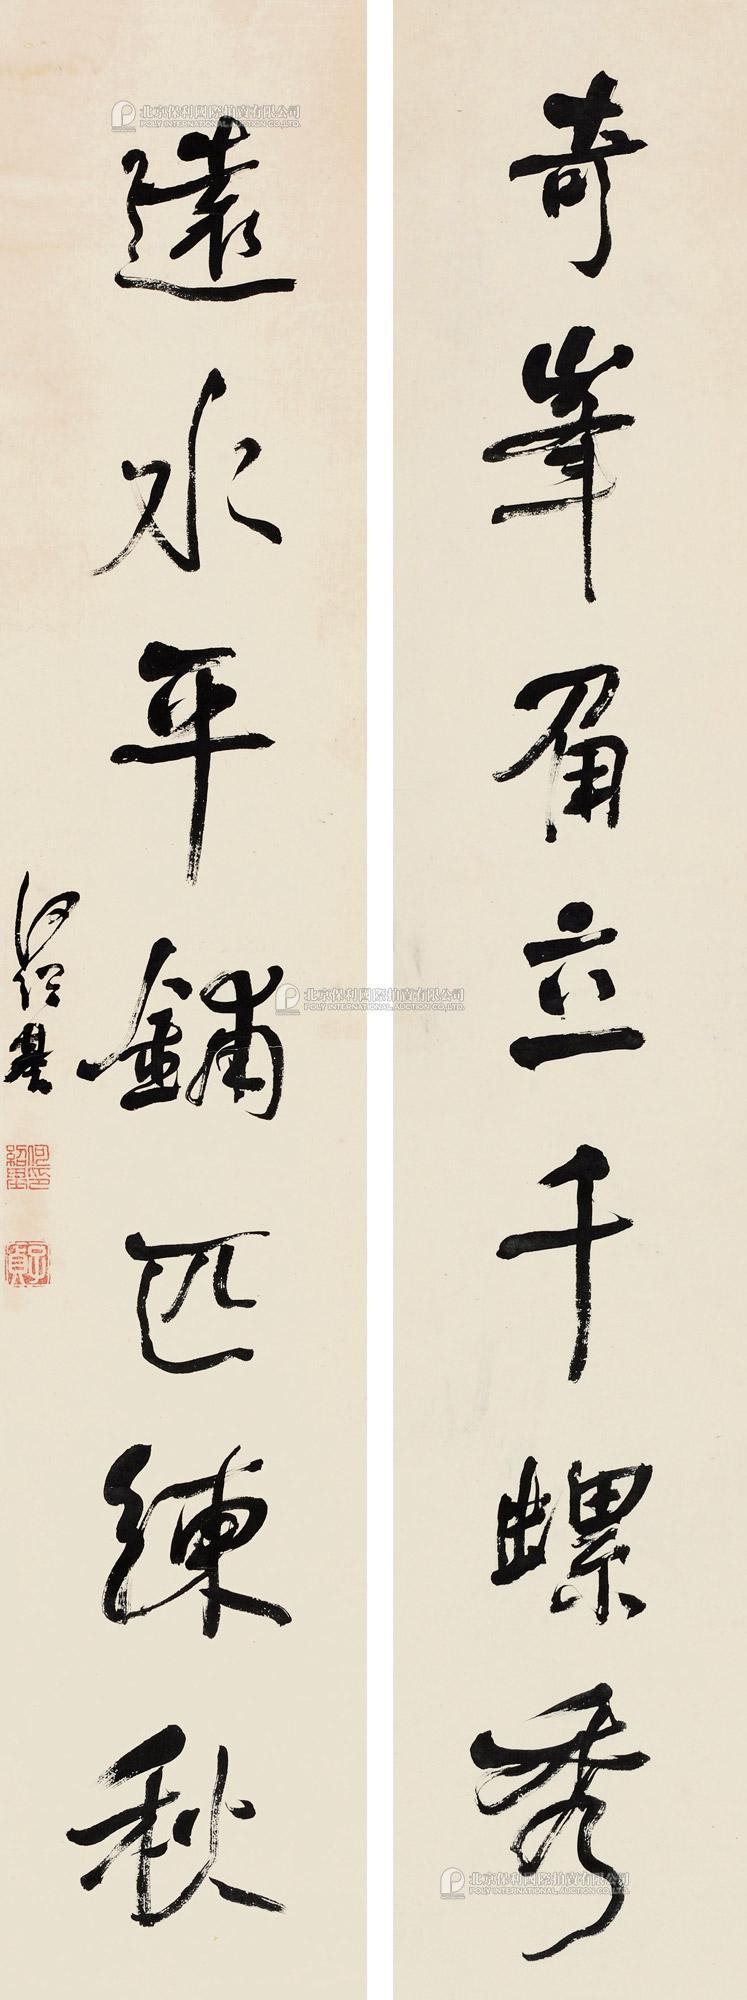 奇峯眉立千螺秀
遠水平鋪匹練秋
何紹基
何紹基印
子貞
北京保利國際拍賣有限公司
POLY INTERNATIONAL AUCTION CO.,LTD.
北京保利國際拍賣有限公司
POLY INTERNATIONAL AUCTION CO.,LTD.
北京保利國際拍賣有限公司
POLY INTERNATIONAL AUCTION CO.,LTD.